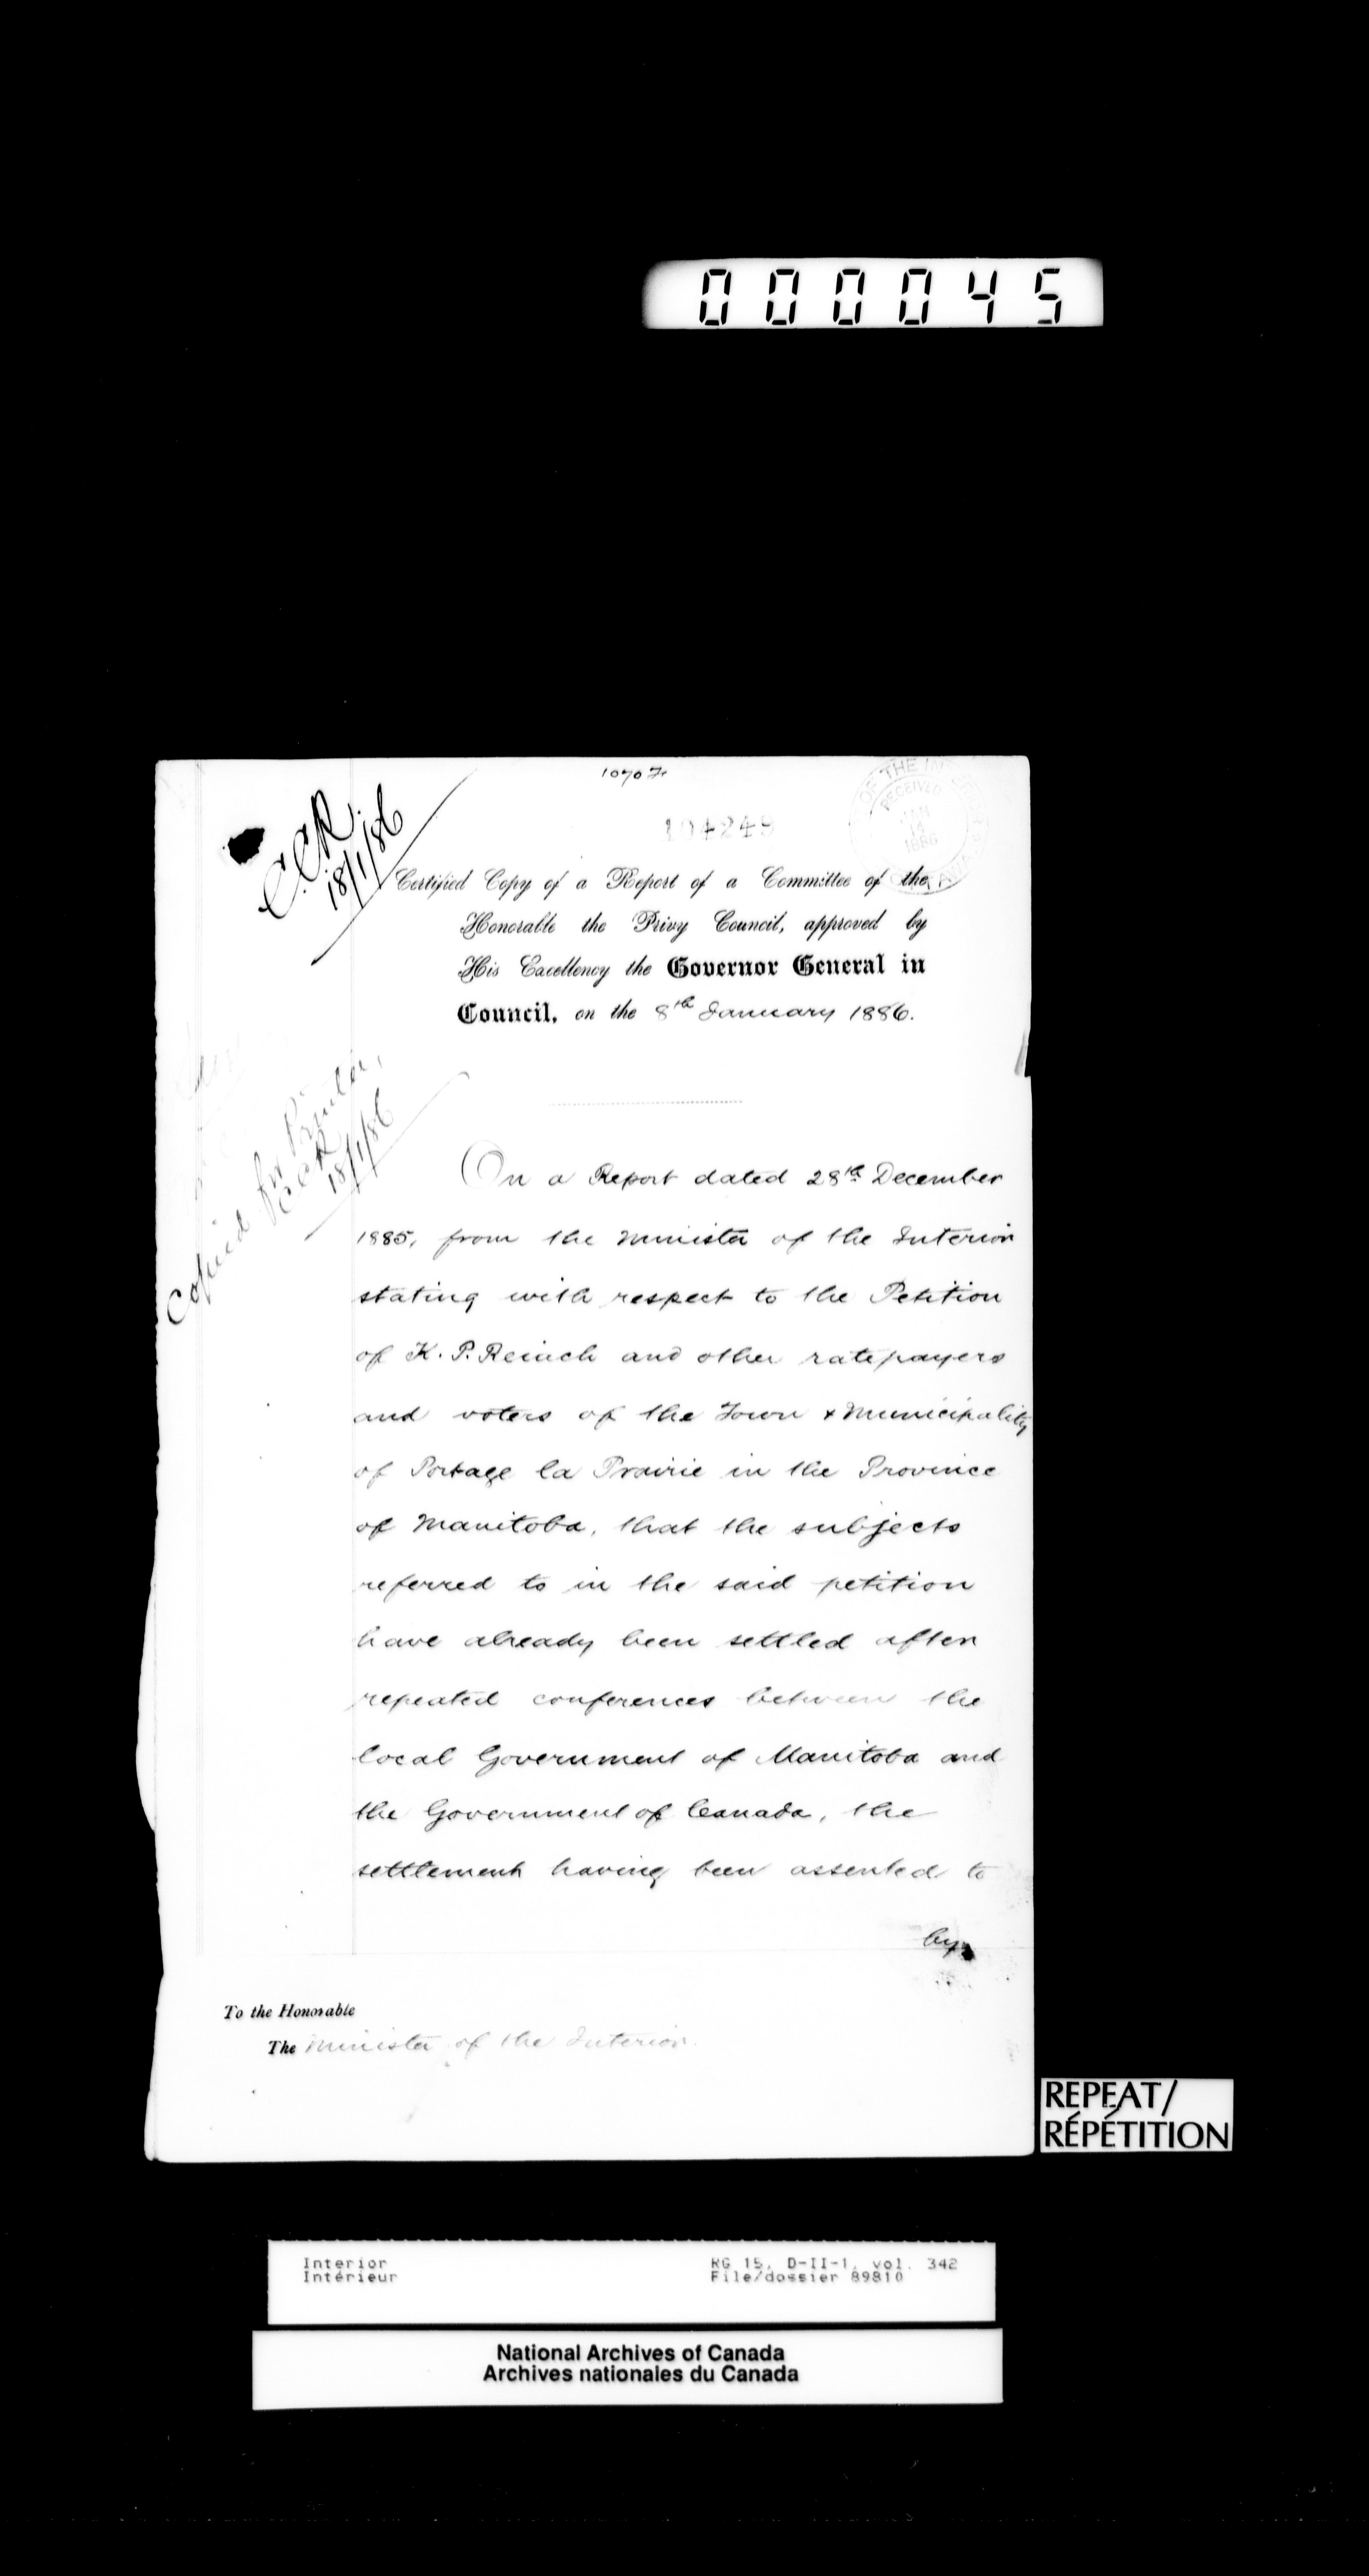 000045
1070 F
104249
OF THE IN
RECEIVED
JAN
14
1886
C.C.R.
18/1/86
Certified Copy of a Report of a Committee of the
Honorable the Privy Council, approved by
His Excellency the Governor General in
Council, on the 8th January 1886.
Copied for Printer,
CCR
18/1/86
On a Report dated 28th December
1885, from the Minister of the Interior
stating with respect to the Petition
of K. P. Reinch and other ratepayers
and voters of the Town & Municipality
of Portage la Prairie in the Province
of Manitoba, that the subjects
referred to in the said petition
have already been settled after
repeated conferences between the
local Government of Manitoba and
the Government of Canada, the
settlement having been assented to
by
To the Honorable
The Minister of the Interior.
REPEAT/
RÉPÉTITION
Interior RG 15, D-II-1, vol. 342
Intérieur File/dossier 89810
National Archives of Canada
Archives nationales du Canada